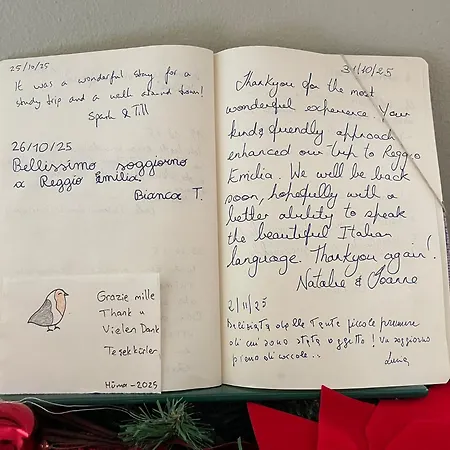 25/10/25
It was a wonderful stay for a
study trip and a walk around town!
& Till
26/10/25
Bellissimo soggiorno
a Reggio Emilia!
Bianca T.
Grazie mille
Thank u
Vielen Dank
Teşekkürler
Hüma - 2025
31/10/25
Thankyou for the most
wonderful experience. Your
kind & friendly approach
enhanced our trip to Reggio
Emilia. We will be back
soon, hopefully with a
better ability to speak
the beautiful Italian
language. Thankyou again!
Natalie & Joanne
2/11/25
Deliziata dalle tante piccole premure
di cui sono stata oggetto! Un soggiorno
pieno di coccole...
Luna